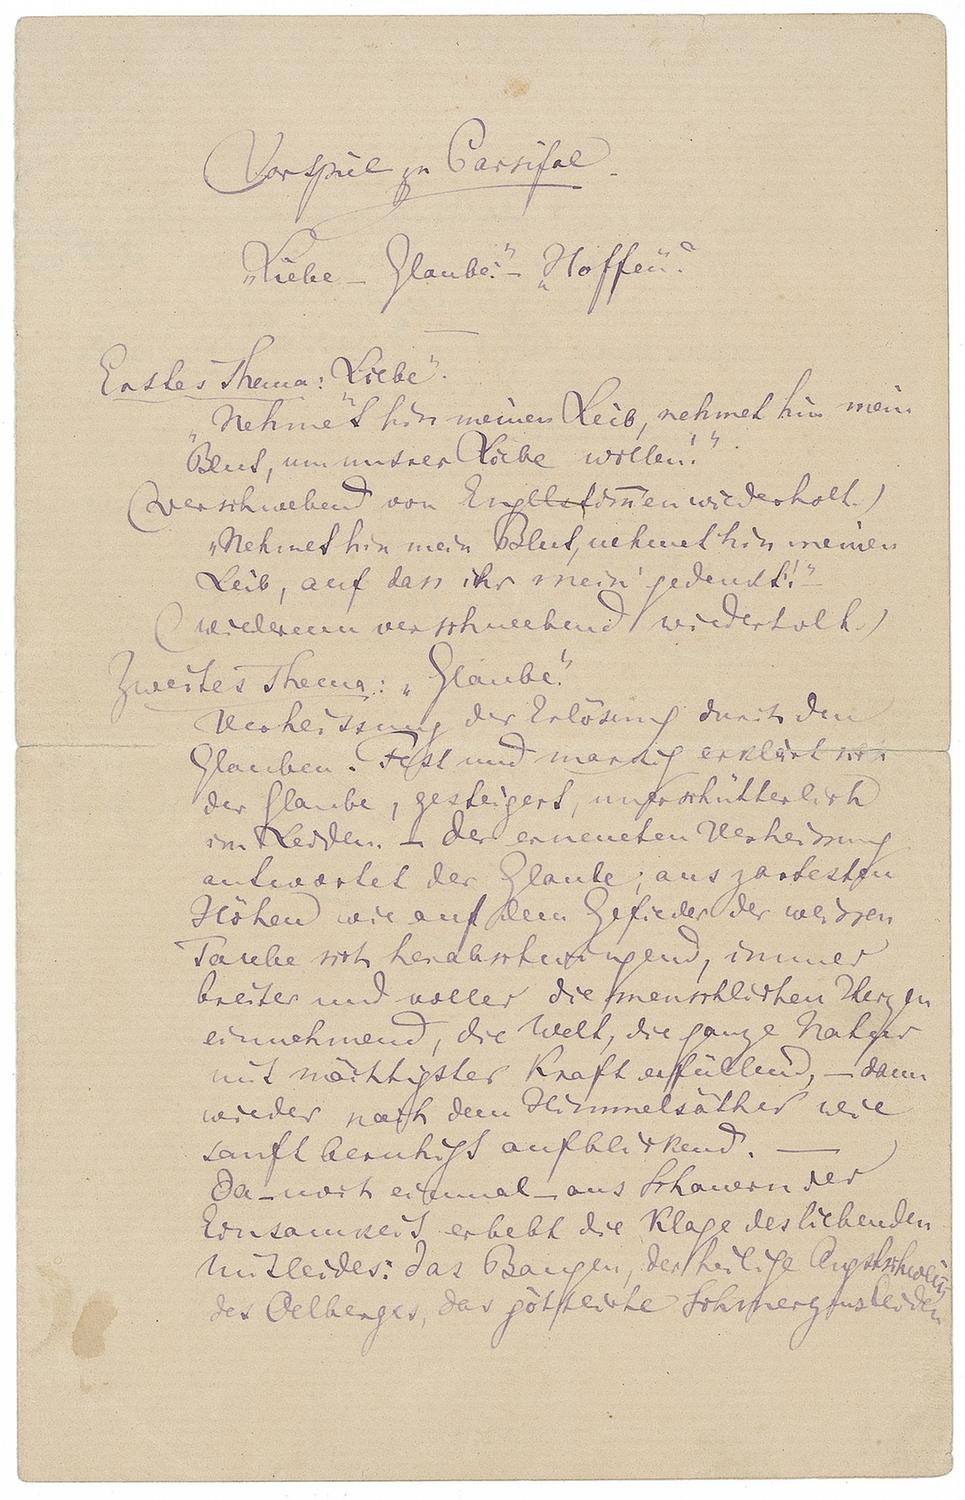 Vorspiel zu Parsifal.
„Liebe – Glaube." – „Hoffen"?
Erstes Thema: „Liebe".
„Nehmet hin meinen Leib, nehmet hin mein
Blut, um unsrer Liebe willen!"
(verschwebend von Engelstimmen wiederholt.)
„Nehmet hin mein Blut, nehmet hin meinen
Leib, auf dass ihr mein' gedenkt!" –
(wiederum verschwebend wiederholt.)
Zweites Thema: „Glaube."
Verheissung der Erlösung durch den
Glauben. Fest und markig erklärt sich
der Glaube, gesteigert, unerschütterlich
im Leiden. – Der erneueten Verheissung
antwortet der Glaube; aus zartesten
Höhen wie auf dem Gefieder der weissen
Taube sich herabschwingend, immer
breiter und voller die menschlichen Herzen
einnehmend, die Welt, die ganze Natur
mit mächtigster Kraft erfüllend, – dann
wieder nach dem Himmelsäther wie
sanft beruhigt aufblickend. —
Da – noch einmal – aus Schauern der
Einsamkeit erbebt die Klage des liebenden
Mitleides: das Bangen, der heilige Angstschweiss
des Oelberges, das göttliche Schmerzensleiden